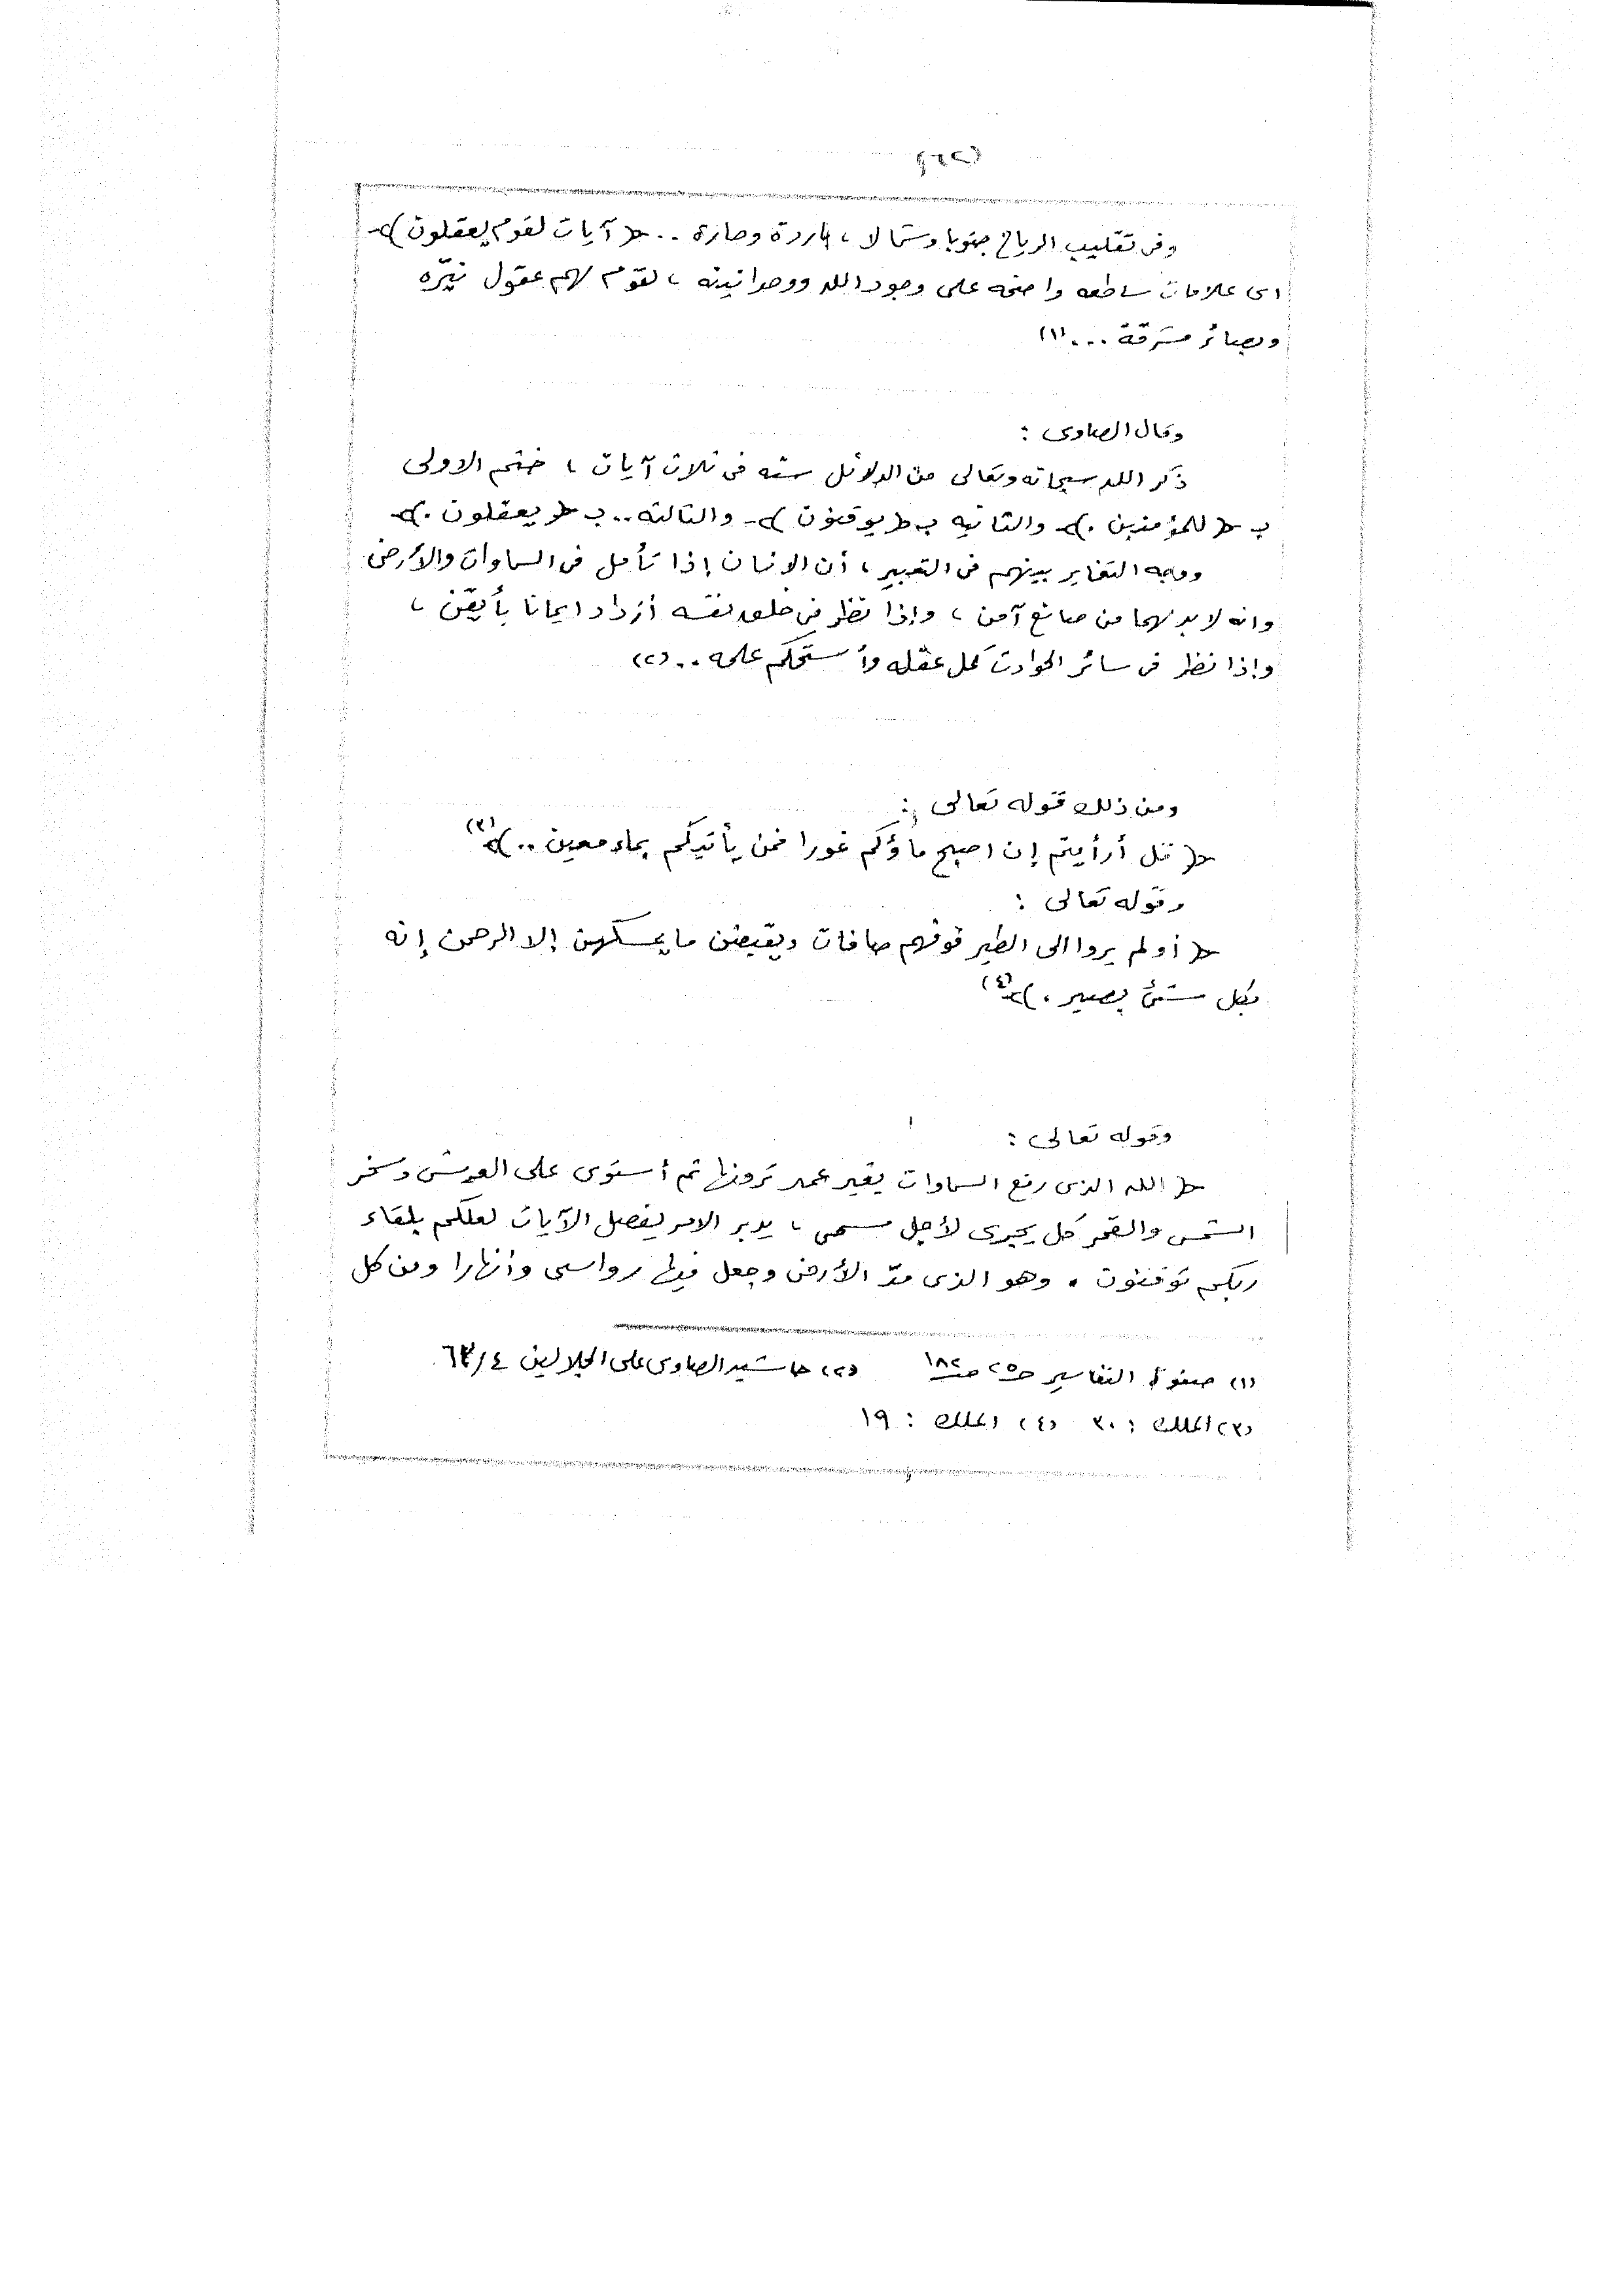 وفى تقليب الرياح جنوبا وشمالا ، باردة وحارة .. ﴿ آيات لقوم يعقلون ﴾
اى علامات ساطعه واضحه على وجود الله ووحدانيته ، لقوم لهم عقول نيّره
وبصائر مشرقة ... (١)
وقال الصاوى :
ذكر الله سبحانه وتعالى من الدلائل سته فى ثلاث آيات ، ختم الاولى
ب ﴿ للمؤمنين . ﴾ والثانيه ب ﴿ يوقنون ﴾ والثالثه .. ب ﴿ يعقلون . ﴾
ووجه التغاير بينهم فى التعبير ، أن الانسان إذا تأمل فى السماوات والأرض
وانه لابد لهما من صانع آمن ، وإذا نظر فى خلق نفسه أزداد ايمانا فأيقن ،
وإذا نظر فى سائر الحوادث كمل عقله وأستحكم علمه .. (٢)
ومن ذلك قوله تعالى :
﴿ قل أرأيتم إن اصبح ماؤكم غورا فمن يأتيكم بماء معين .. ﴾ (٣)
وقوله تعالى :
﴿ أولم يروا الى الطير فوقهم صافات ويقبضن ما يمسكهن إلا الرحمن إنه
بكل شئ بصير . ﴾ (٤)
وقوله تعالى :
﴿ الله الذى رفع السماوات بغير عمد ترونها ثم أستوى على العرش وسخر
الشمس والقمر كل يجرى لأجل مسمى ، يدبر الامر يفصل الآيات لعلكم بلقاء
ربكم توقنون . وهو الذى مدّ الأرض وجعل فيها رواسى وأنهارا ومن كل
(١) صفوة التفاسير ح٢٥ ص١٨٢ (٢) حاشيه الصاوى على الجلالين ٤/٦٣
(٣) الملك : ٣٠ (٤) الملك : ١٩